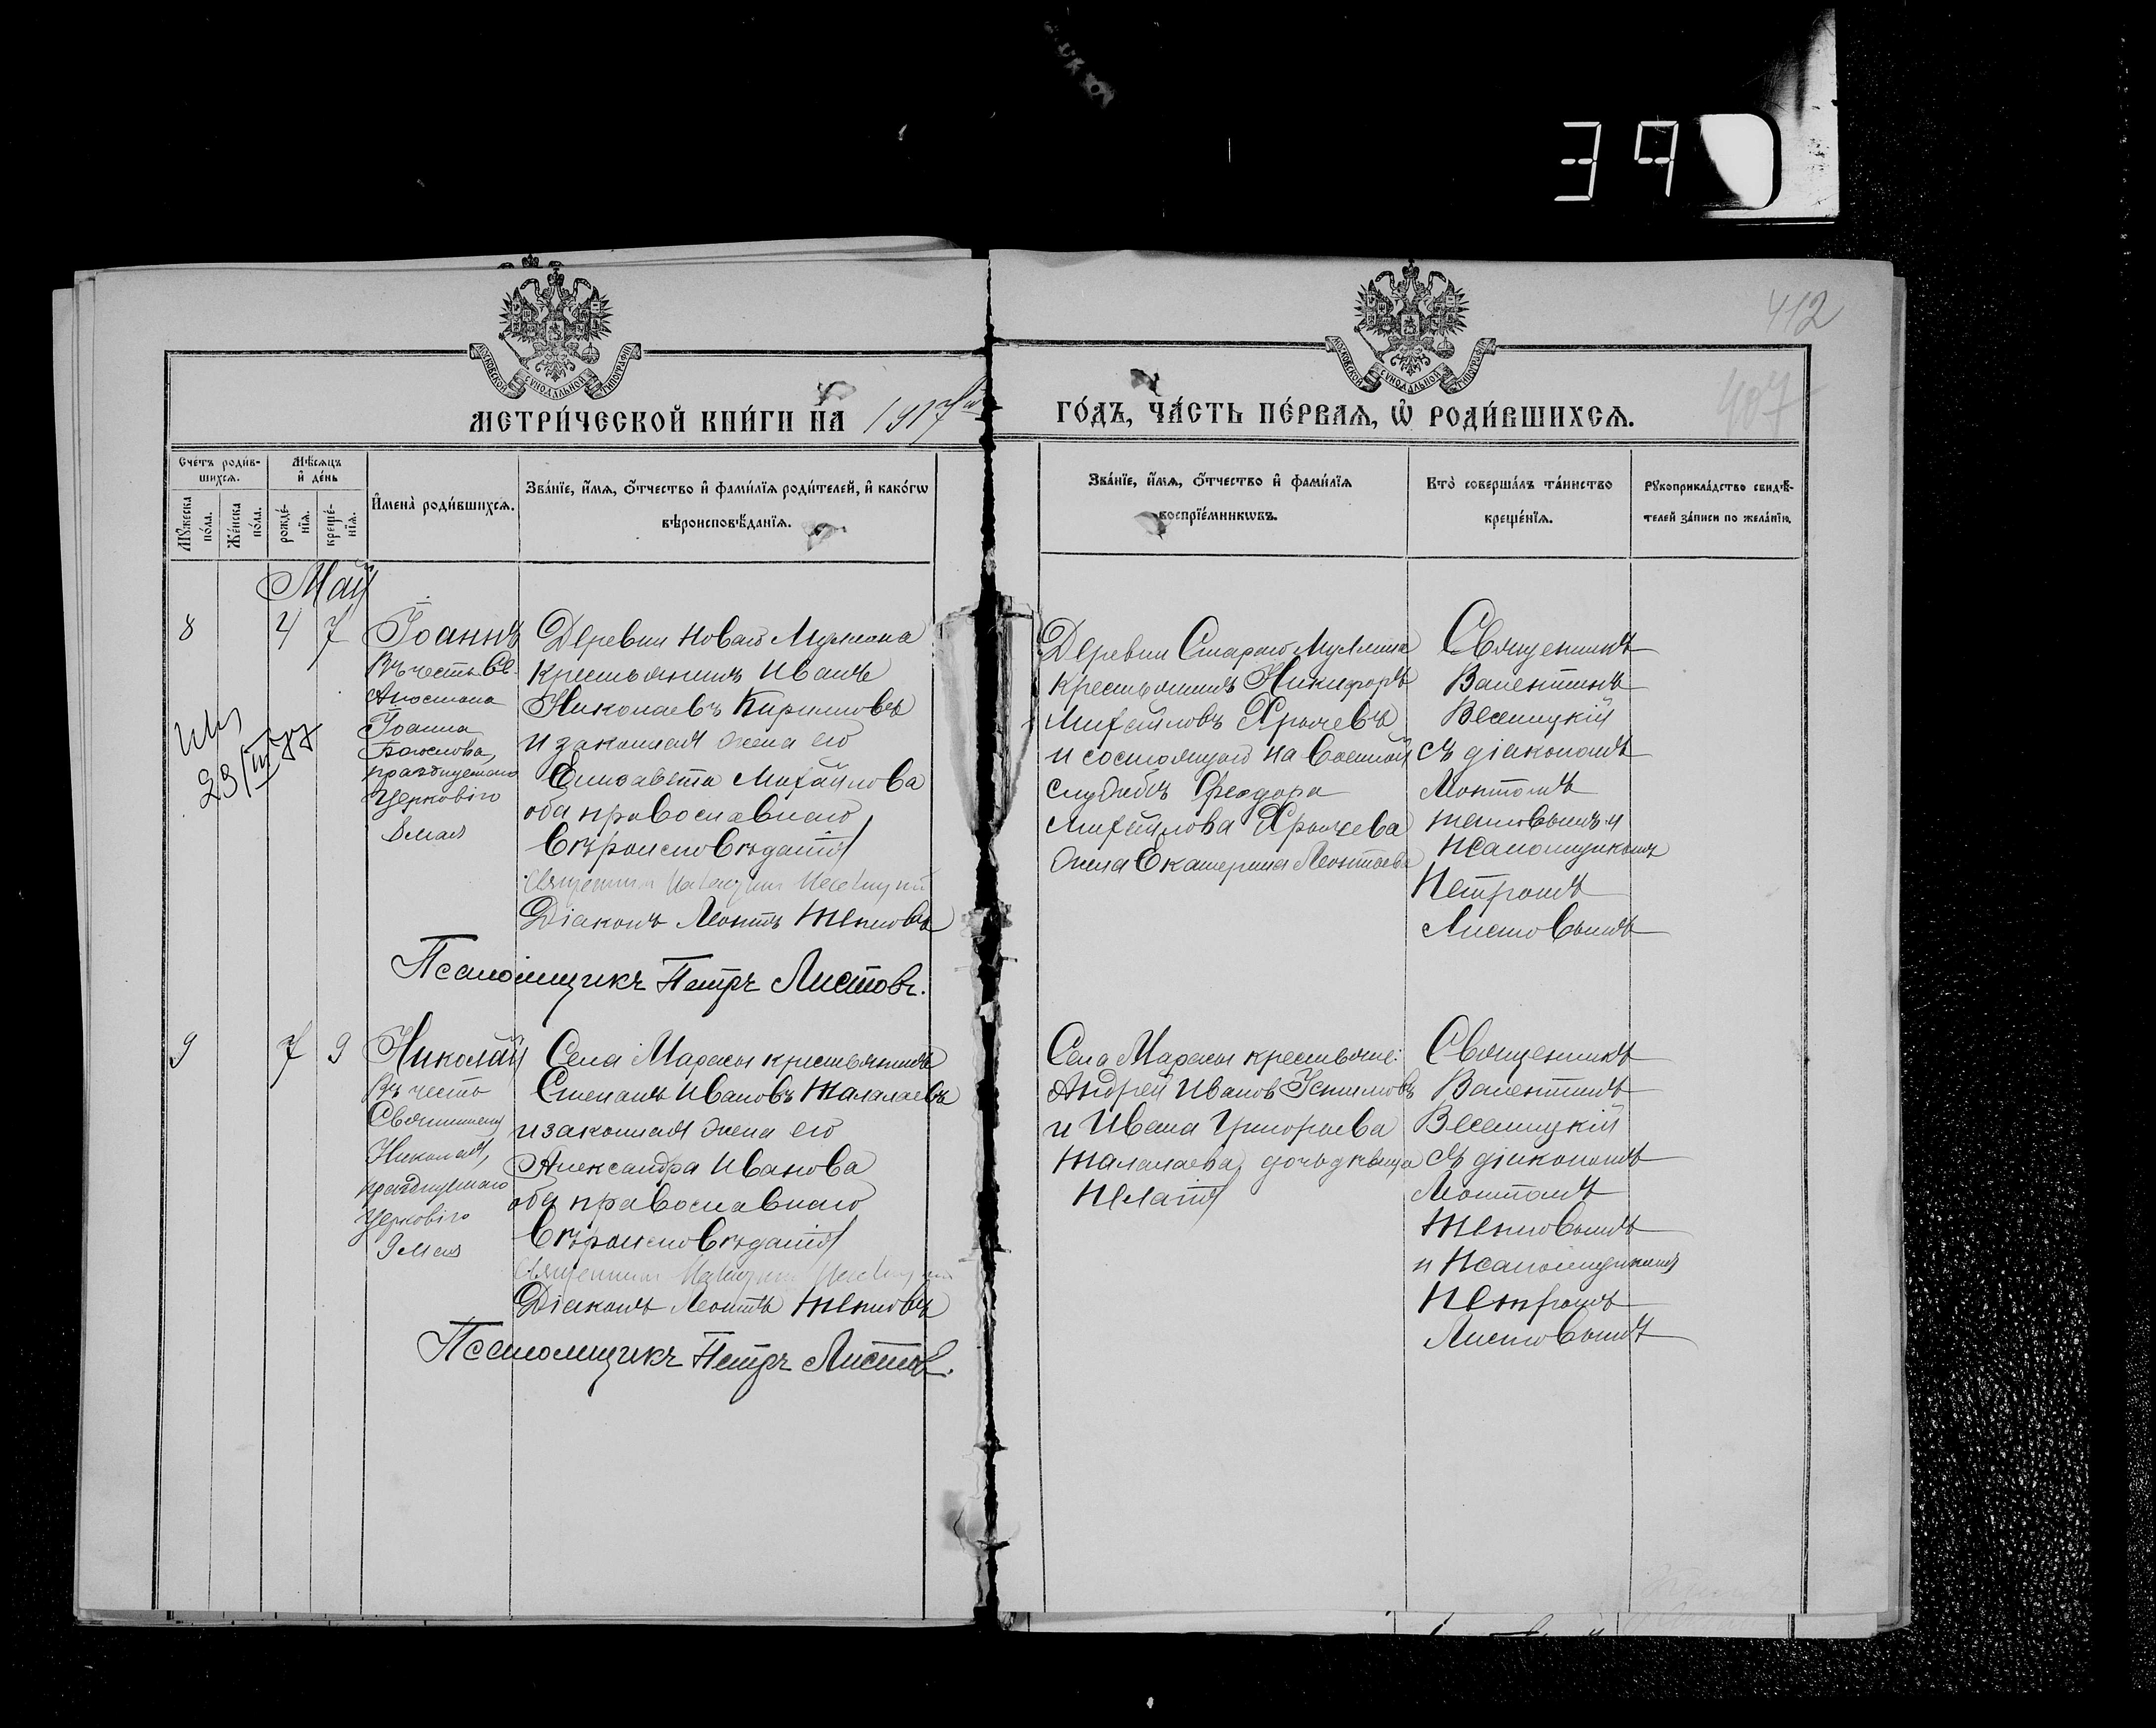 39
412
407
МОСКОВСКОЙ СУНОДАЛЬНОЙ ТИПОГРАФІИ
МОСКОВСКОЙ СУНОДАЛЬНОЙ ТИПОГРАФІИ
МЕТРИ́ЧЕСКОЙ КНИ́ГИ НА 1917й
ГО́ДЪ, ЧА́СТЬ ПЕ́РВАЯ, Ѡ РОДИ́ВШИХСЯ.
Счетъ роди́вшихся.
Мꙋ́жеска по́ла.
Же́нска по́ла.
Мѣ́сяцъ и де́нь
рожде́нїя.
креще́нїя.
Имена̀ роди́вшихся.
Зва́нїе, и́мя, о́тчество и фами́лїя роди́телей, и како́гѡ
вѣроисповѣ́данїя.
Зва́нїе, и́мя, о́тчество и фами́лїя
воспрїе́мникѡвъ.
Кто̀ соверша́лъ та́инство
креще́нїя.
Рꙋкоприкла́дство свидѣ́-
телей за́писи по жела́нїю.
Май
8
4
7
Іоаннъ
Въ честь Св.
Апостола
Іоанна
Богослова,
празднуемаго
Церковію
8 мая
23/III 77
Деревни Новаго
крестьянинъ Иванъ
Николаевъ Кирилловъ
и законная жена его
Елисавета Михайлова
оба православнаго
вѣроисповѣданія
Священникъ
Діаконъ Леонтій
Псаломщикъ Петръ Листовъ.
Деревни Стараго
крестьянинъ Никифоръ
Михайловъ Хрычевъ
и состоящаго на военной
службѣ Ѳеодора
Михайлова Хрычева
жена Екатерина Леонтьева
Священникъ
Валентинъ
Веселицкій
съ діакономъ
Леонтіемъ
и
псаломщикомъ
Петромъ
Листовымъ
9
7
9
Николай
Въ честь
Святителя
Николая,
празднуемаго
Церковію
9 мая
Села Марасы крестьянинъ
Степанъ Ивановъ Талалаевъ
и законная жена его
Александра Иванова
оба православнаго
вѣроисповѣданія
Священникъ
Діаконъ Леонтій
Псаломщикъ Петръ Листовъ.
Села Марасы крестьяне:
Андрей Ивановъ
и Ивана Григорьева
Талалаева, дочь дѣвица
Пелагія
Священникъ
Валентинъ
Веселицкій
съ діакономъ
Леонтіемъ
и псаломщикомъ
Петромъ
Листовымъ